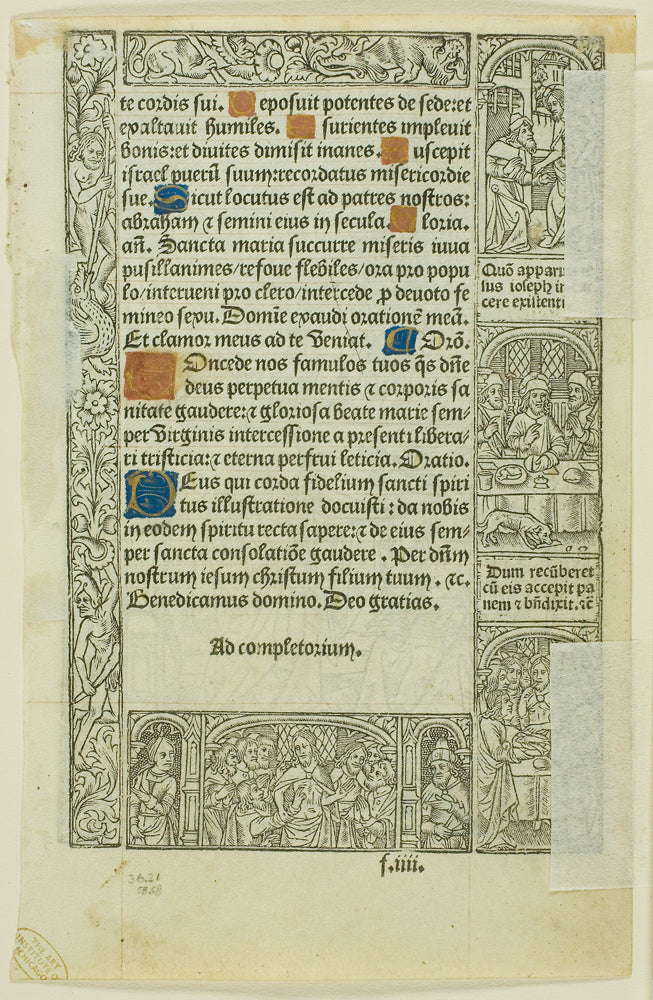 te cordis sui. Deposuit potentes de sede: et
exaltauit humiles. Esurientes impleuit
bonis: et diuites dimisit inanes. Suscepit
israel puerũ suum: recordatus misericordie
sue. Sicut locutus est ad patres nostros:
abraham ⁊ semini eius in secula. Gloria.
añ. Sancta maria succurre miseris iuua
pusillanimes/refoue flebiles/ora pro popu
lo/interueni pro clero/intercede ꝓ deuoto fe
mineo sexu. Domĩe exaudi orationẽ meã.
Et clamor meus ad te veniat. Orõ.
Concede nos famulos tuos q̃s dñe
deus perpetua mentis ⁊ corporis sa
nitate gaudere: ⁊ gloriosa beate marie sem
per virginis intercessione a presenti libera
ri tristicia: ⁊ eterna perfrui leticia. Oratio.
Deus qui corda fidelium sancti spiri
tus illustratione docuisti: da nobis
in eodem spiritu recta sapere: ⁊ de eius sem
per sancta consolatiõe gaudere. Per dñm
nostrum iesum christum filium tuum. ⁊c.
Benedicamus domino. Deo gratias.
Ad completorium.
Quõ apparu
sus ioseph in
cere existenti
Dum recũberet
cũ eis accepit pa
nem ⁊ bñdixit. ⁊c̃
f.iiii.
36.21
58.58
THE ART
INSTITUTE OF
CHICAGO